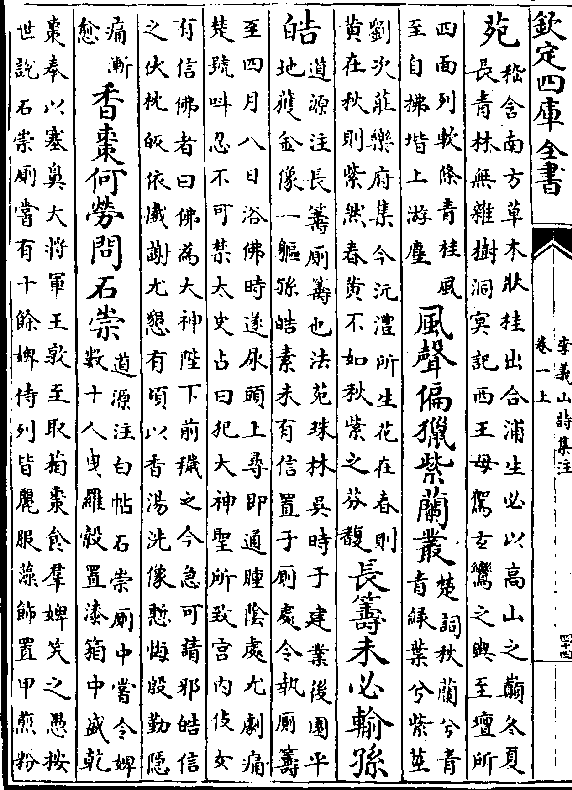 欽定四庫全書
李義山詩集注
卷一上
四十四
苑
嵇含南方草木狀桂出合浦生必以高山之巔冬夏
長青林無雜樹洞冥記西王母駕玄鸞之輿至壇所
四面列軟條青桂風
至自拂堦上游塵
風聲偏獵紫蘭叢
楚詞秋蘭兮青
青綠葉兮紫莖
劉次莊樂府集今沅澧所生花在春則
黄在秋則紫然春黄不如秋紫之芬馥
長籌未必輸孫
皓
道源注長籌厠籌也法苑珠林吳時于建業後園平
地穫金像一軀孫皓素未有信置于厠處令執厠籌
至四月八日浴佛時遂尿頭上尋即通腫陰處尤劇痛
楚號叫忍不可禁太史占曰犯大神聖所致宫内伎女
有信佛者曰佛為大神陛下前穢之今急可請邪皓信
之伏枕皈依懺謝尤懇有頃以香湯洗像慙悔殷勤隠
痛漸
愈
香棗何勞問石崇
道源注白帖石崇厠中嘗令婢
數十人曳羅縠置漆箱中盛乾
棗奉以塞鼻大將軍王敦至取箱棗食羣婢笑之愚按
世說石崇厠嘗有十餘婢侍列皆麗服藻飾置甲煎粉